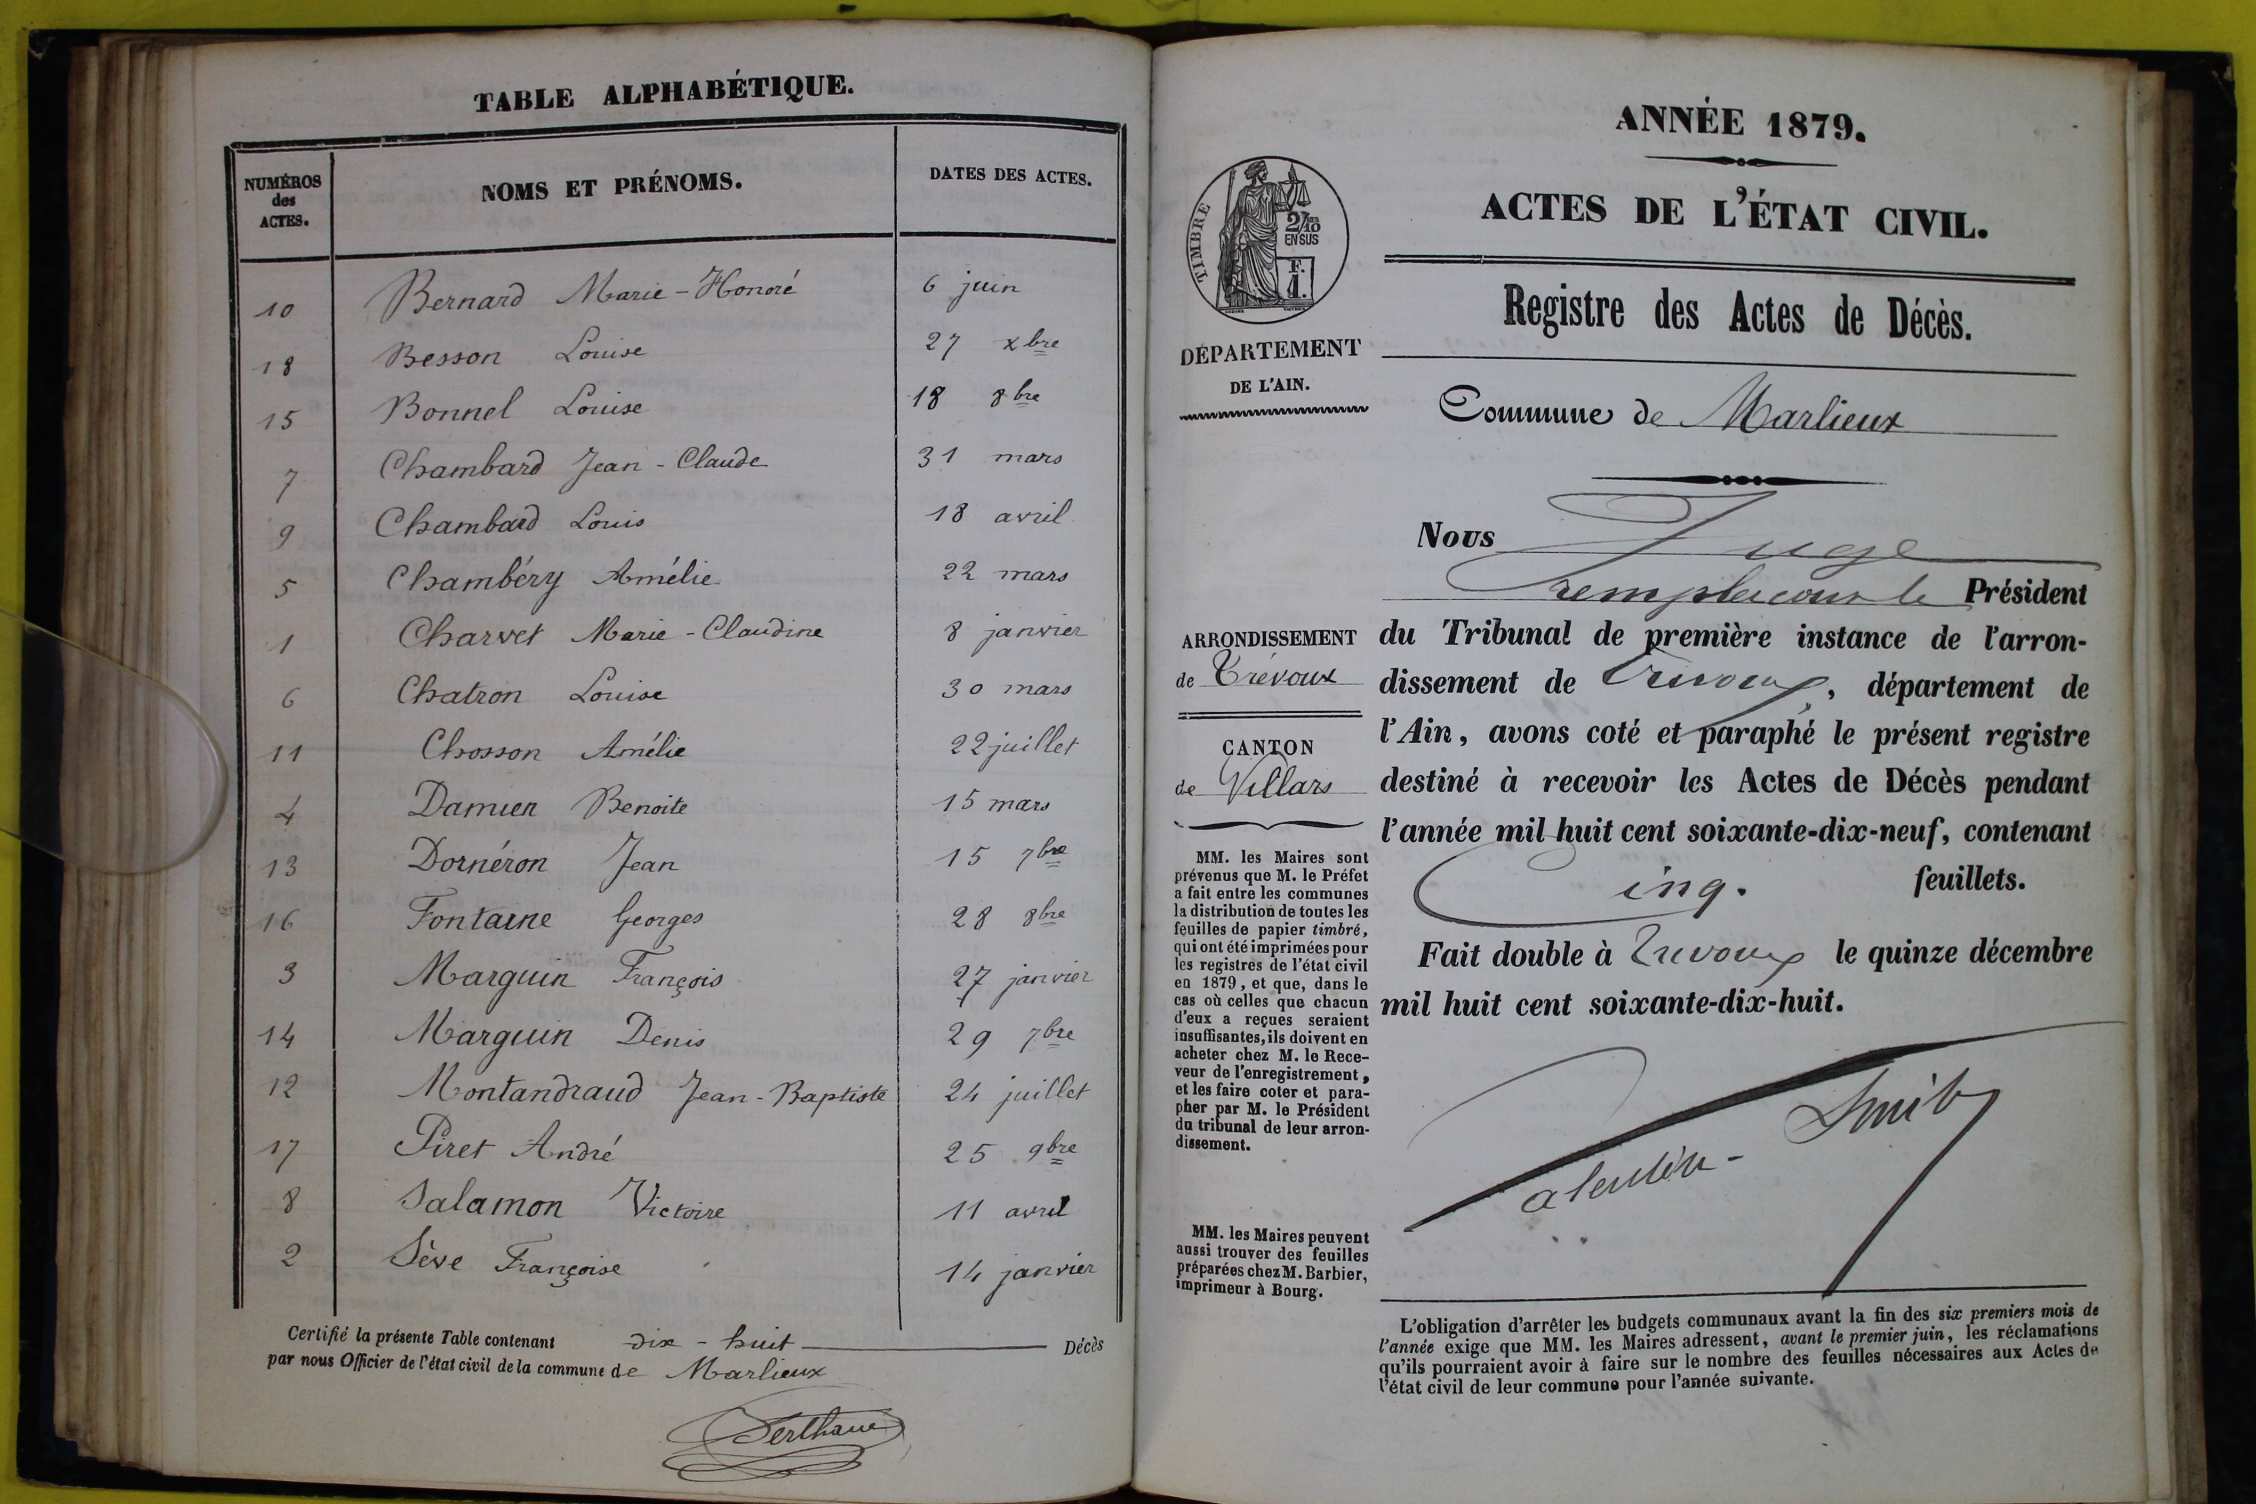 TABLE ALPHABÉTIQUE.
NUMÉROS des ACTES. NOMS ET PRÉNOMS. DATES DES ACTES.
10 Bernard Marie-Honoré 6 juin
18 Besson Louise 27 xbre
15 Bonnel Louise 18 8bre
7 Chambard Jean-Claude 31 mars
9 Chambard Louis 18 avril
5 Chambéry Amélie 22 mars
1 Charvet Marie-Claudine 8 janvier
6 Chatron Louise 30 mars
11 Chosson Amélie 22 juillet
4 Damien Benoite 15 mars
13 Dornéron Jean 15 7bre
16 Fontaine Georges 28 8bre
3 Marguin François 27 janvier
14 Marguin Denis 29 7bre
12 Montandraud Jean-Baptiste 24 juillet
17 Piret André 25 9bre
8 Salamon Victoire 11 avril
2 Sève Françoise 14 janvier
Certifié la présente Table contenant dix-huit Décès
par nous Officier de l'état civil de la commune de Marlieux
ANNÉE 1879.
ACTES DE L'ÉTAT CIVIL.
Registre des Actes de Décès.
Commune de Marlieux
TIMBRE
2/10
EN SUS
F.
1.
DÉPARTEMENT
DE L'AIN.
ARRONDISSEMENT
de Trévoux
CANTON
de Villars
MM. les Maires sont
prévenus que M. le Préfet
a fait entre les communes
la distribution de toutes les
feuilles de papier timbré,
qui ont été imprimées pour
les registres de l'état civil
en 1879, et que, dans le
cas où celles que chacun
d'eux a reçues seraient
insuffisantes, ils doivent en
acheter chez M. le Rece-
veur de l'enregistrement,
et les faire coter et para-
pher par M. le Président
du tribunal de leur arron-
dissement.
MM. les Maires peuvent
aussi trouver des feuilles
préparées chez M. Barbier,
imprimeur à Bourg.
Nous Juge
remplaçant le Président
du Tribunal de première instance de l'arron-
dissement de Trévoux, département de
l'Ain, avons coté et paraphé le présent registre
destiné à recevoir les Actes de Décès pendant
l'année mil huit cent soixante-dix-neuf, contenant
Cinq. feuillets.
Fait double à Trévoux le quinze décembre
mil huit cent soixante-dix-huit.
L'obligation d'arrêter les budgets communaux avant la fin des six premiers mois de
l'année exige que MM. les Maires adressent, avant le premier juin, les réclamations
qu'ils pourraient avoir à faire sur le nombre des feuilles nécessaires aux Actes de
l'état civil de leur commune pour l'année suivante.